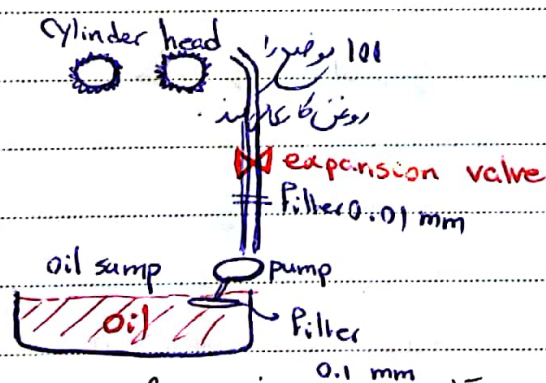 cylinder head
101 موضع را
روغن کاری
expansion valve
Filter 0.01 mm
oil sump
pump
oil
Filter
0.1 mm